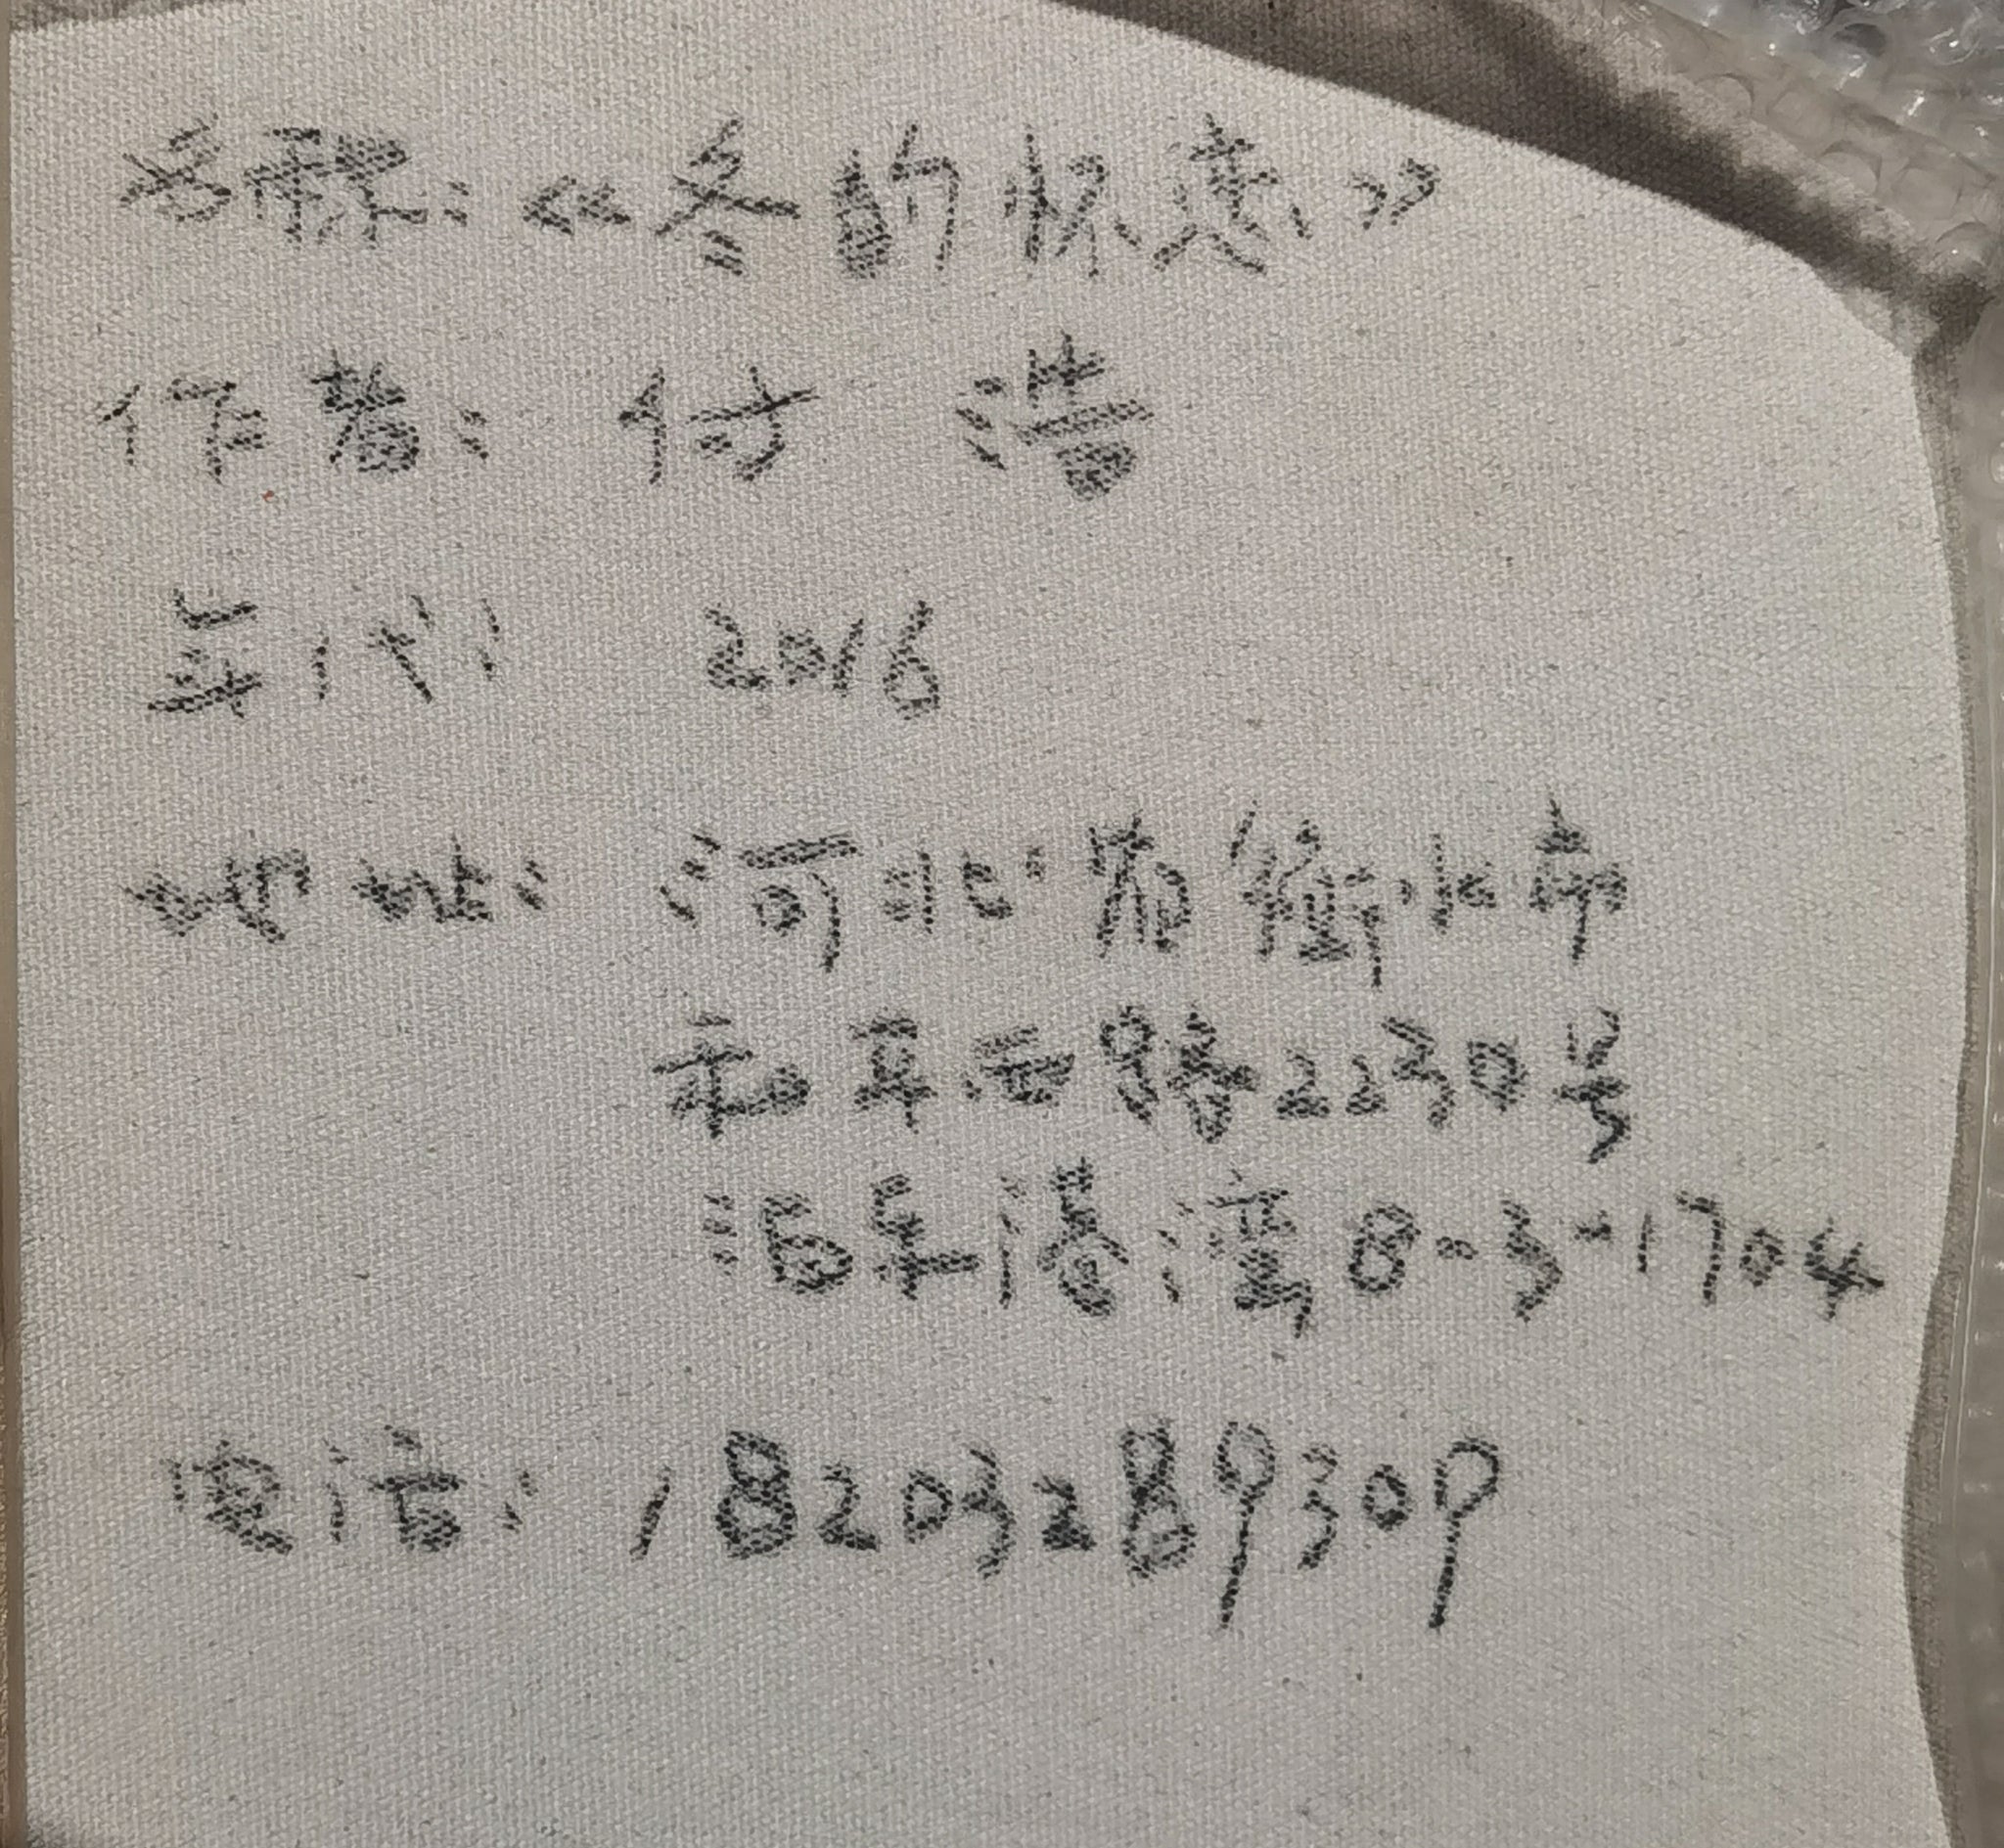 名称:《冬的怀恋》
作者: 付 浩
年代 2016
地址: 河北省衡水市
和平西路2230号
怡然港湾8-3-1704
电话: 18203289309